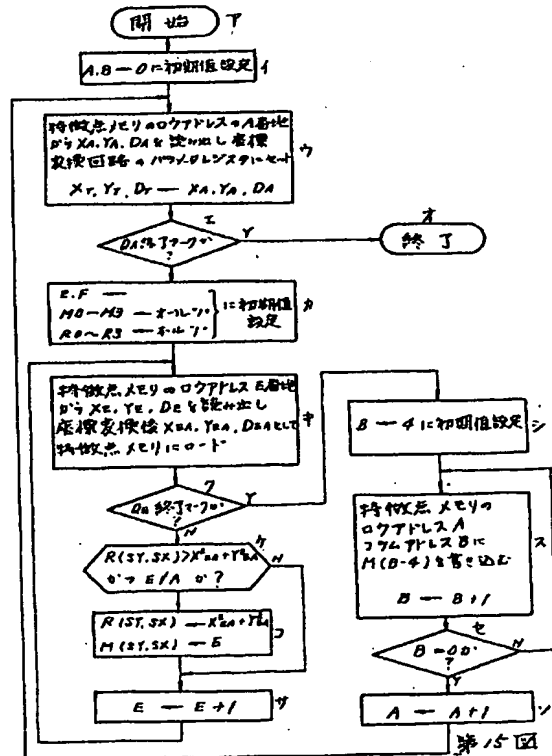 開始 ア
A.B ← 0に初期値設定 イ
特徴点メモリのロウアドレスのA番地
からXA,YA,DAを読み出し座標
変換回路のパラメタレジスタにセット ウ
XT,YT,DT ← XA,YA,DA
エ
DA終了マークか
?
Y
オ
終了
E.F ←
M0〜M3 ← オール
R0〜R3 ← オール
に初期値
設定 カ
特徴点メモリのロウアドレスE番地
からXE,YE,DEを読み出し
座標変換後XEA,YEA,DEAとして
特徴点メモリにロード
キ
ク
DE終了マークか
?
Y
N
R(SY,SX)>X²EA+Y²EA
かつ E/A か?
ケ
N
R(SY,SX) ← X²EA+Y²EA
M(SY,SX) ← E
コ
E ← E+1 サ
B ← 4に初期値設定 シ
特徴点メモリの
ロウアドレスA
コラムアドレスBに
M(B-4)を書き込む
B ← B+1
ス
セ
B=0か
?
N
Y
A ← A+1 ソ
第15図